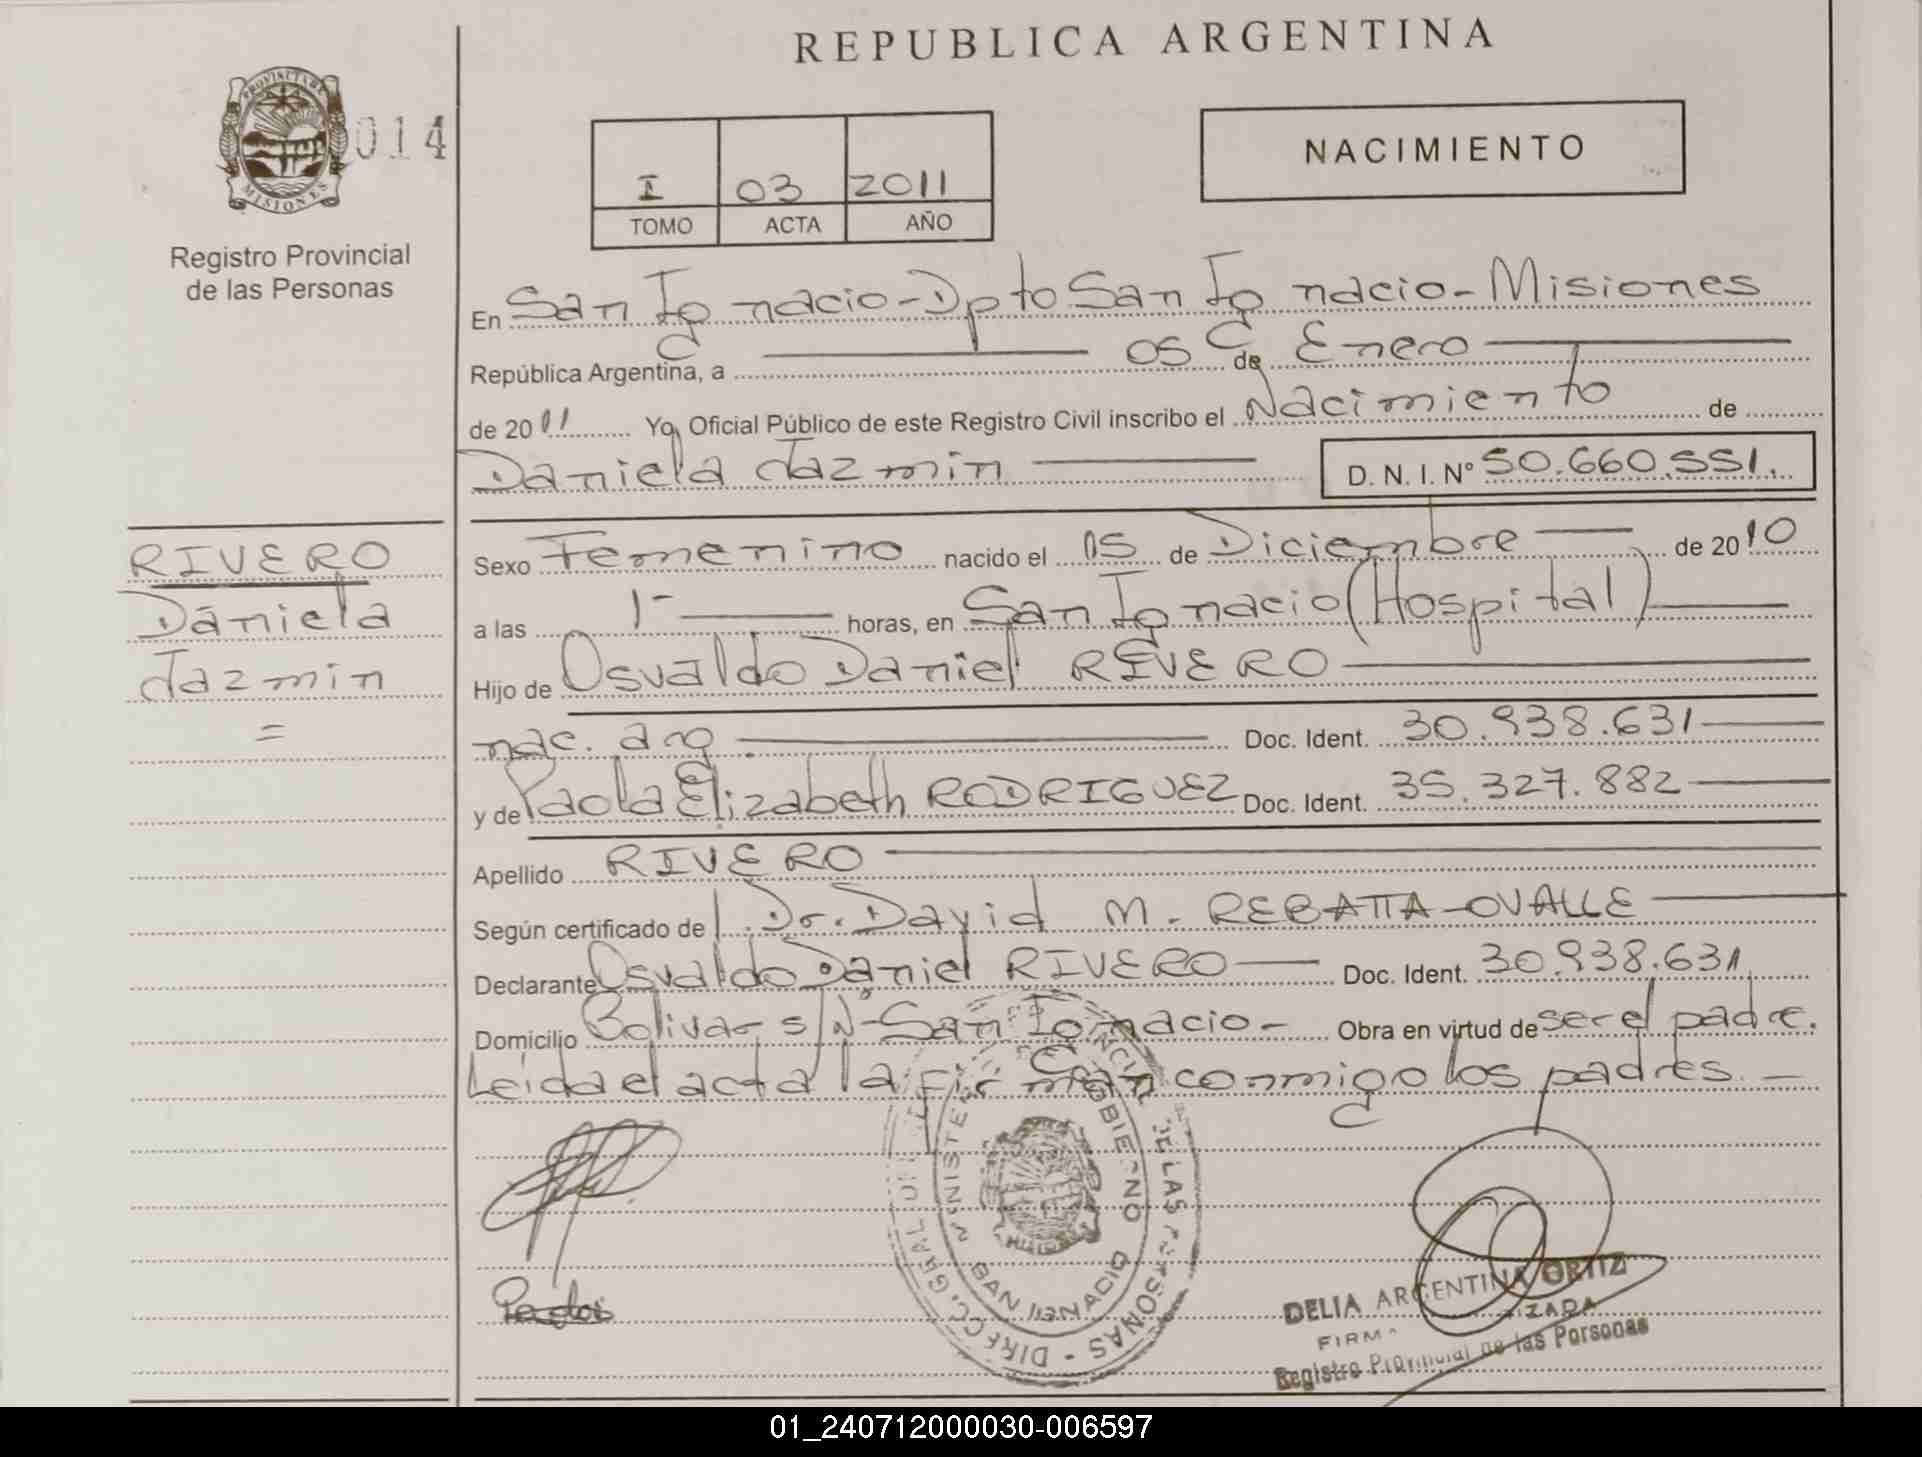 REPUBLICA ARGENTINA
PROVINCIA DE
MISIONES
014
Registro Provincial
de las Personas
I 03 2011
TOMO ACTA AÑO
NACIMIENTO
En San Ignacio - Dpto San Ignacio - Misiones
República Argentina, a 05 de Enero
de 2011 Yo, Oficial Público de este Registro Civil inscribo el Nacimiento de
Daniela Jazmin D. N. I. Nº 50.660.551.
RIVERO
Daniela
Jazmin
=
Sexo Femenino nacido el 05 de Diciembre de 2010
a las 1- horas, en San Ignacio (Hospital)
Hijo de Osvaldo Daniel RIVERO
nac. arg. Doc. Ident. 30.938.631
y de Paola Elizabeth RODRIGUEZ Doc. Ident. 35.327.882
Apellido RIVERO
Según certificado de Dr. David M. REBATTA-OVALLE
Declarante Osvaldo Daniel RIVERO Doc. Ident. 30.938.631
Domicilio Bolivar s/Nº - San Ignacio - Obra en virtud de ser el padre.
Leida el acta la firman conmigo los padres. -
DIRECC. GRAL DE LAS PERSONAS
MINISTERIO GOBIERNO
SAN IGNACIO
DELIA ARGENTINA ORTIZ
Registro Provincial de las Personas
01_240712000030-006597